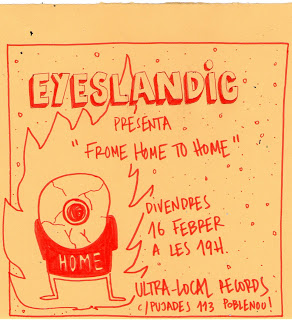 EYESLANDIC
PRESENTA
"FROME HOME TO HOME"
DIVENDRES
16 FEBRER
A LES 19H.
HOME
ULTRA-LOCAL RECORDS
C/PUJADES 113 POBLENOU!